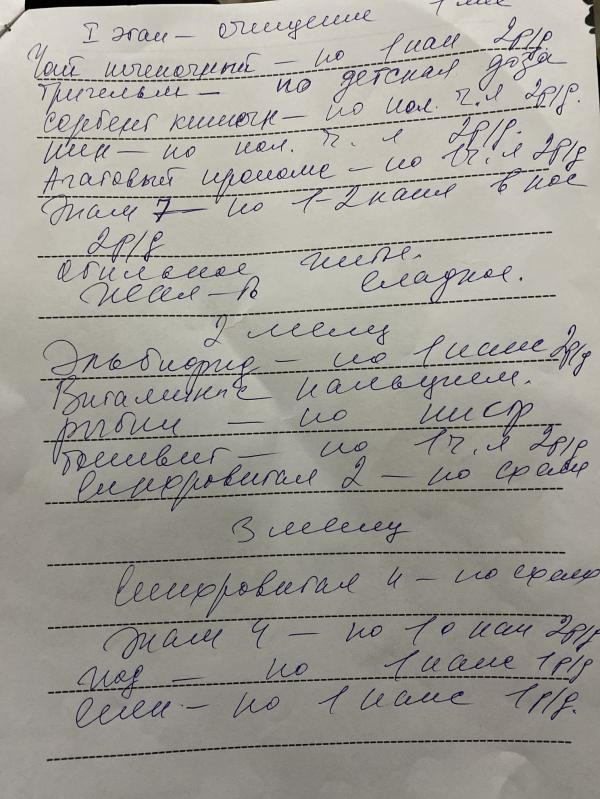 I этап – очищение 1 мес
Чай печеночный – по 1 пак 2р/д
Тригельм – по детская доза
Сорбент кишечн – по пол. ч.л 2р/д.
по пол. ч. л 2р/д.
Агатовый прополис – по 1ч.л 2р/д
Эпам 7 – по 1-2 капл в нос
2р/д
Обильное питье.
сладкое.
2 месяц
Эльбиорид – по 1 капс 2р/д
Витаминыс кальцием.
рыбки – по инстр
по 1ч.л 2р/д
Синхровитал 2 – по схеме
3 месяц
Синхровитал 4 – по схеме
Эпам 4 – по 10 кап 2р/д
Йод – по 1 капс 1р/д
Селен – по 1 капс 1р/д.